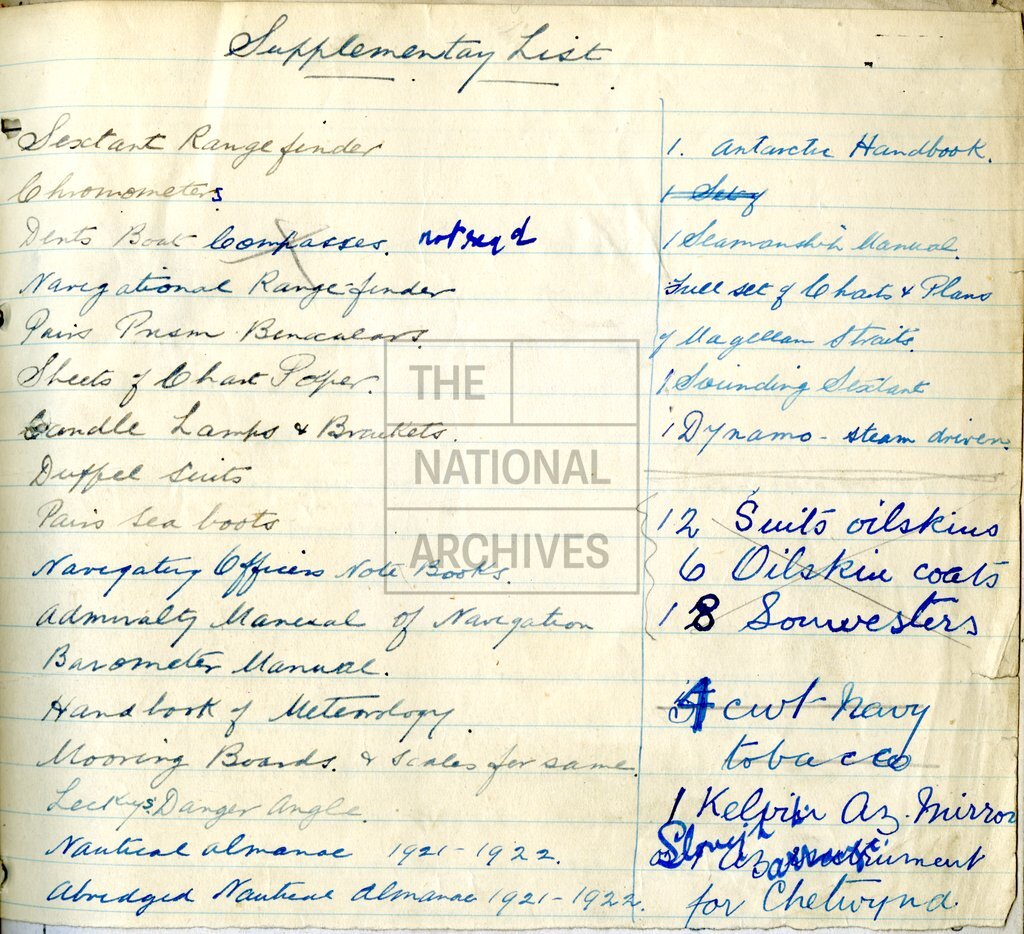 Supplementary List
Sextant Range finder
Chronometers
Dents Boat Compasses. not reqd
Navigational Range-finder
Pairs Prism Binoculars.
Sheets of Chart Paper.
Candle Lamps & Brackets.
Duffel Suits
Pairs Sea boots
Navigating Officers Note Books.
Admiralty Manual of Navigation
Barometer Manual.
Handbook of Meterology.
Mooring Boards. & scales for same.
Leckys Danger Angle.
Nautical almanac 1921-1922.
Abridged Nautical Almanac 1921-1922.
1. Antarctic Handbook.
1 Set of
1 Seamanship Manual.
Full set of Charts & Plans
of Magellan Straits.
1 Sounding Sextant
1 Dynamo - steam driven.
12 Suits oilskins
6 Oilskin coats
18 Souwesters
4 cwt Navy
tobacco
1 Kelvin Az. Mirror
or Az
for Chetwynd
THE
NATIONAL
ARCHIVES